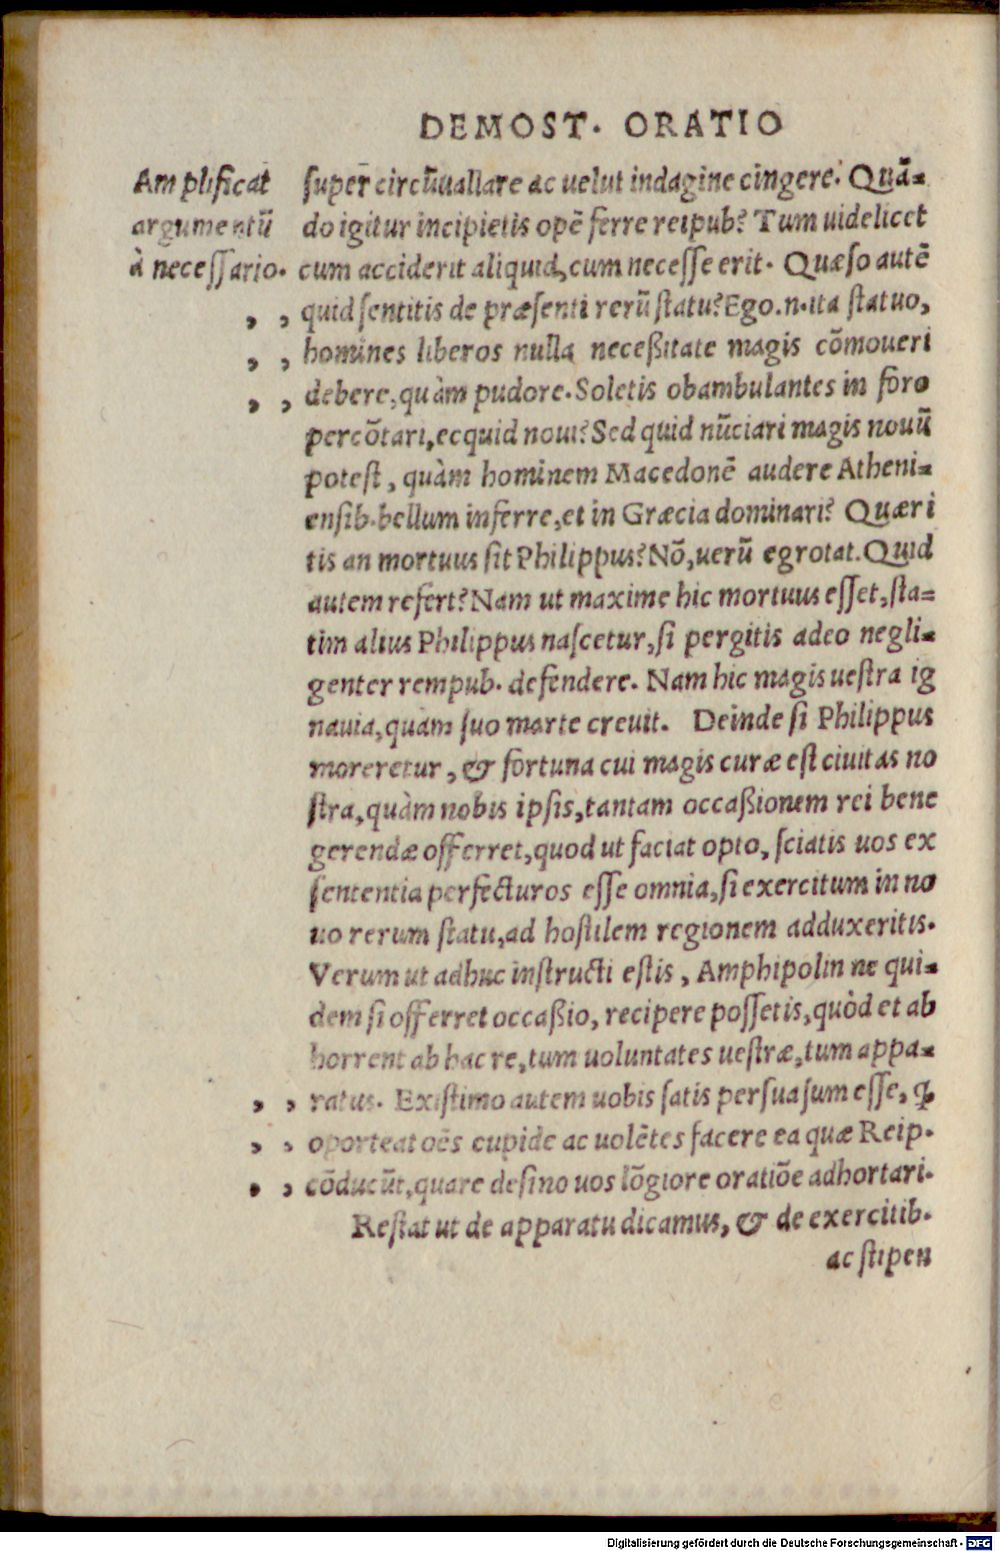 DEMOST. ORATIO
Amplificat
argumentū
à necessario.
super circūuallare ac uelut indagine cingere. Quā=
do igitur incipietis opē ferre reipub? Tum uidelicet
cum acciderit aliquid, cum necesse erit. Quæso autē
, , quid sentitis de præsenti rerū statu? Ego.n.ita statuo,
, , homines liberos nulla neceßitate magis cōmoueri
, , debere, quàm pudore. Soletis obambulantes in foro
percōtari, ecquid noui? Sed quid nūciari magis nouū
potest, quàm hominem Macedonē audere Atheni=
ensib. bellum inferre, et in Græcia dominari? Quæri
tis an mortuus sit Philippus? Nō, uerū egrotat. Quid
autem refert? Nam ut maxime hic mortuus esset, sta=
tim alius Philippus nascetur, si pergitis adeo negli=
genter rempub. defendere. Nam hic magis uestra ig
nauia, quàm suo marte creuit. Deinde si Philippus
moreretur, & fortuna cui magis curæ est ciuitas no
stra, quàm nobis ipsis, tantam occaßionem rei bene
gerendæ offerret, quod ut faciat opto, sciatis uos ex
sententia perfecturos esse omnia, si exercitum in no
uo rerum statu, ad hostilem regionem adduxeritis.
Verum ut adhuc instructi estis, Amphipolin ne qui=
dem si offerret occaßio, recipere possetis, quòd et ab
horrent ab hac re, tum uoluntates uestræ, tum appa=
, , ratus. Existimo autem uobis satis persuasum esse, ꝙ
, , oporteat oēs cupide ac uolētes facere ea quæ Reip.
, , cōducūt, quare desino uos lōgiore oratiōe adhortari.
Restat ut de apparatu dicamus, & de exercitib.
ac stipen
Digitalisierung gefördert durch die Deutsche Forschungsgemeinschaft - DFG